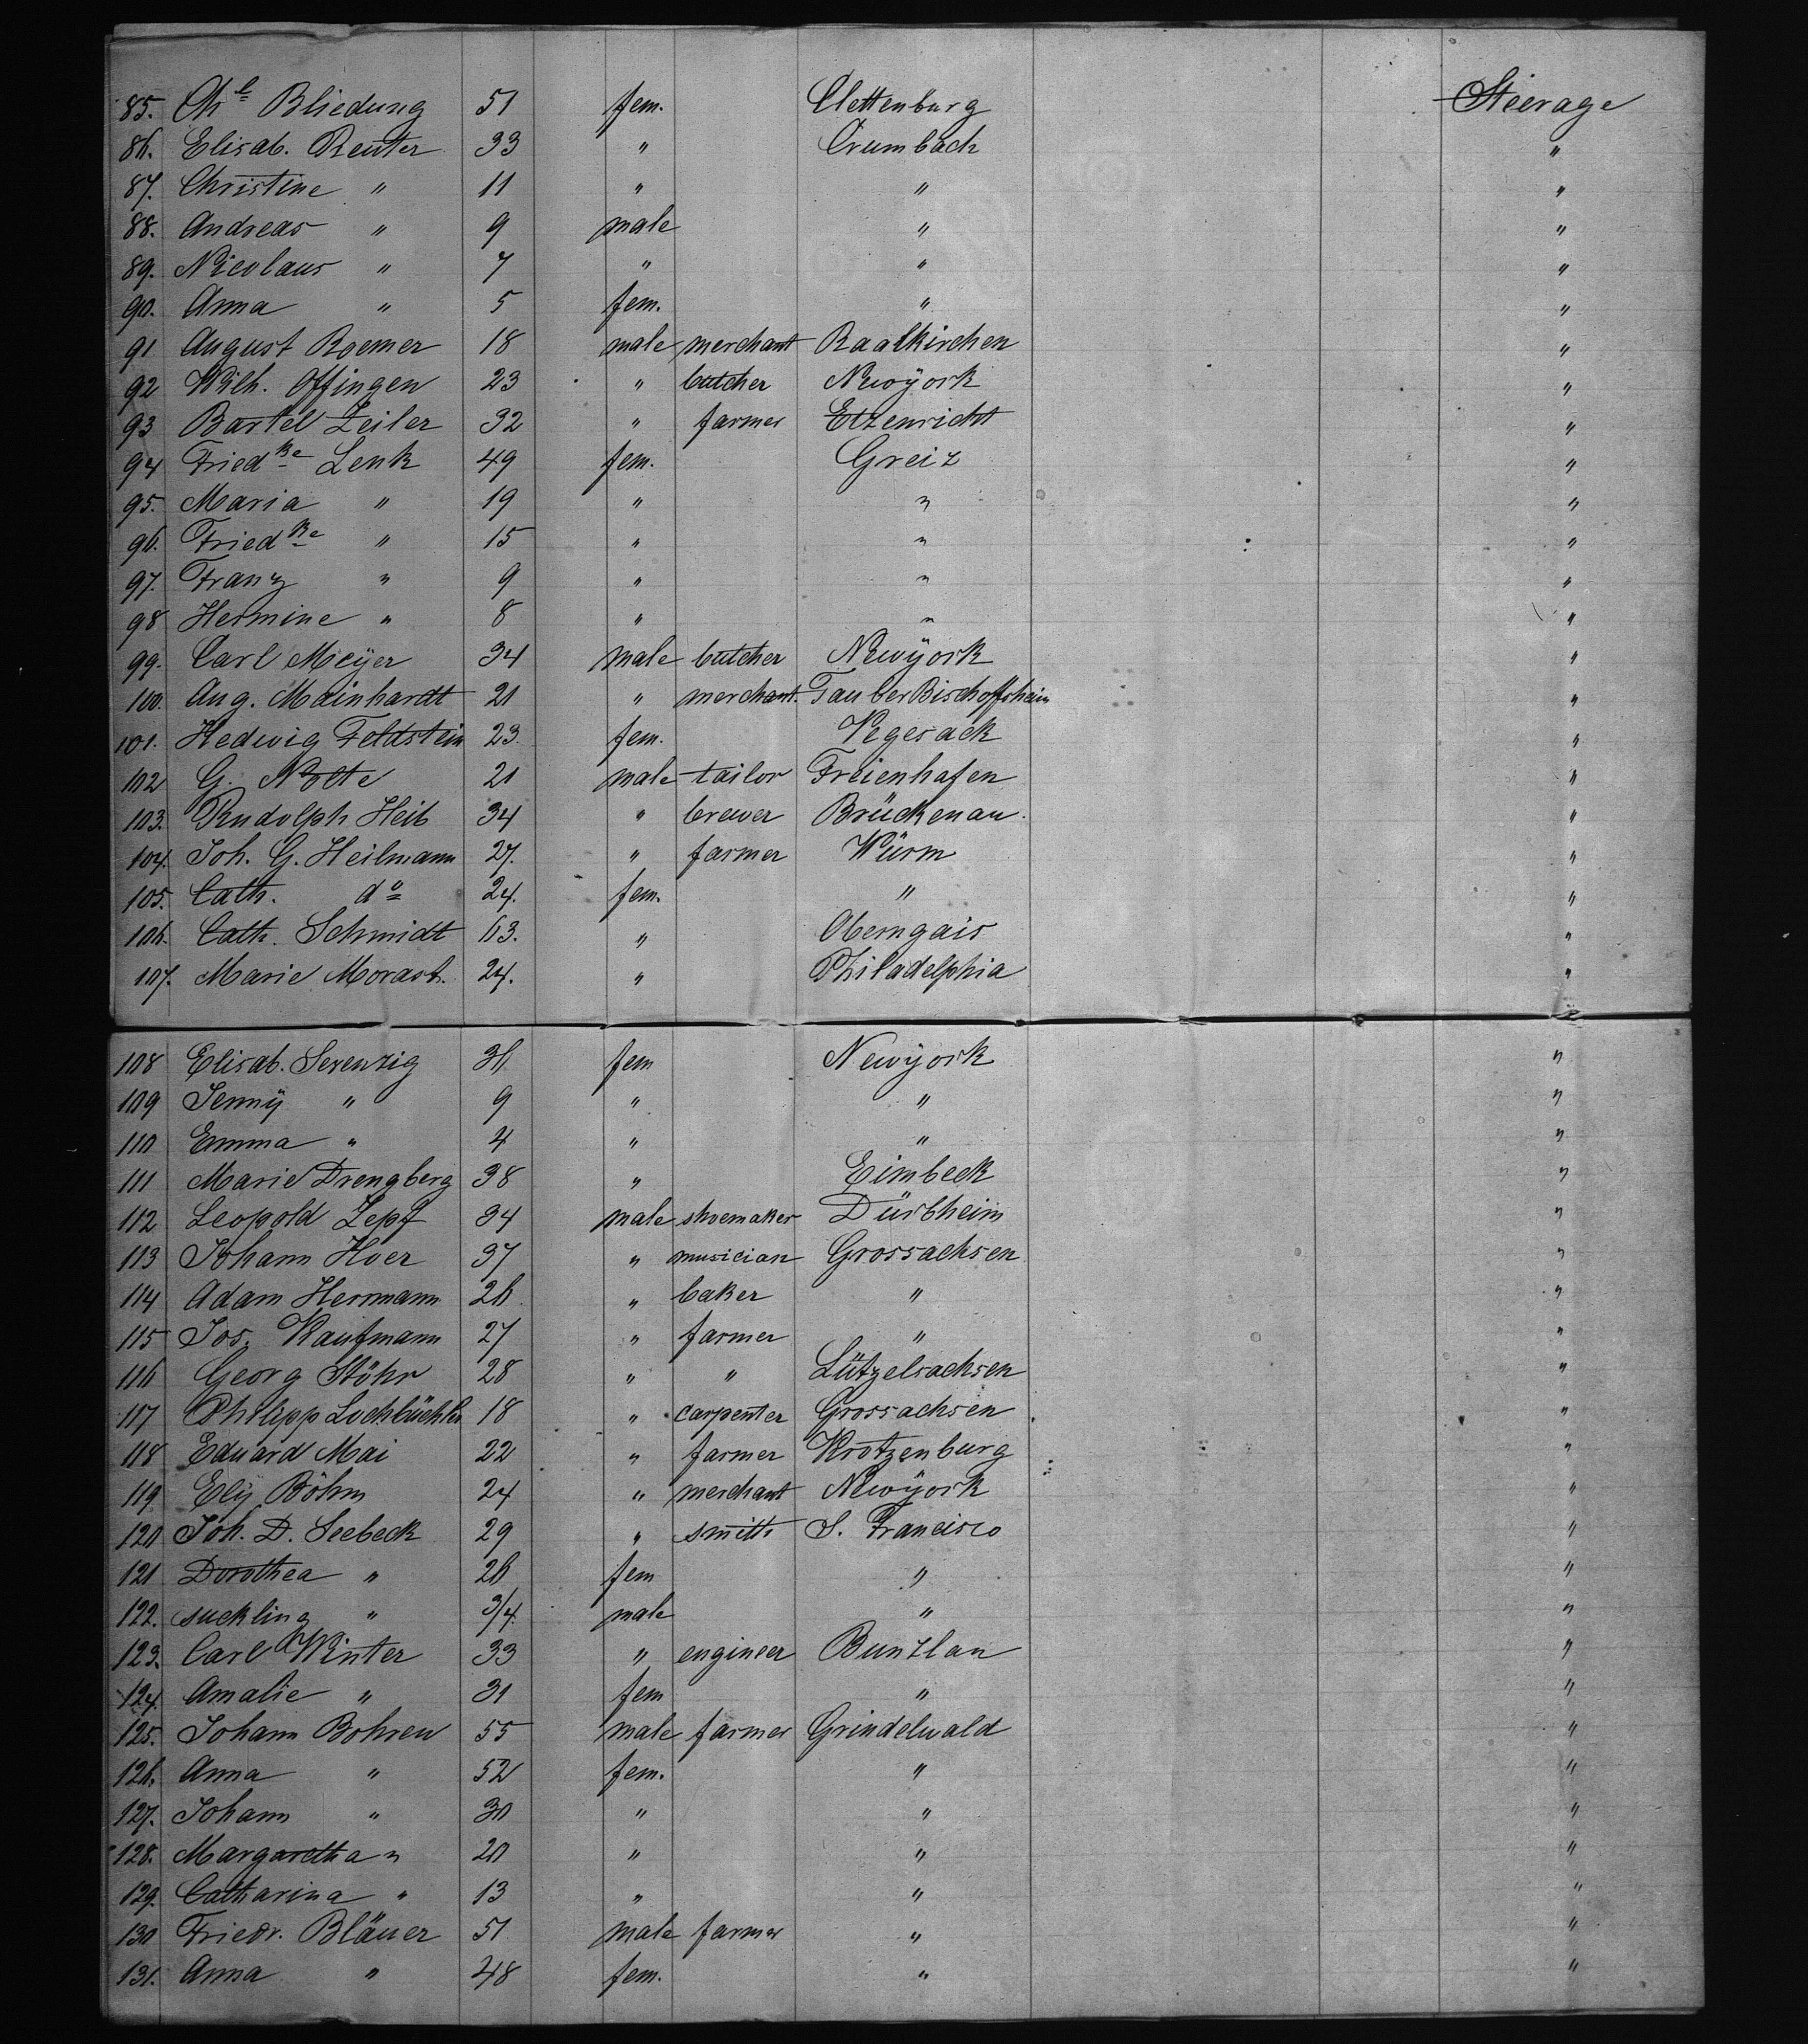 85. Ch^e Bliedung 51 fem. Clettenburg Steerage
86. Elisab. Reuter 33 " Crumbach "
87. Christine " 11 " " "
88. Andreas " 9 male " "
89. Nicolaus " 7 " " "
90. Anna " 5 fem. " "
91 August Roemer 18 male merchant Raalkirchen "
92 Wilh. Offingen 23 " butcher Newÿork "
93 Bartel Zeiler 32 " farmer Etzenricht "
94 Fried^ke Lenk 49 fem. Greiz "
95. Maria " 19 " " "
96. Fried^ke " 15 " " "
97. Franz " 9 " " "
98 Hermine " 8 " " "
99. Carl Meÿer 34 male butcher Newÿork "
100. Aug. Mainhardt 21 " merchant. TauberBischoffsheim "
101. Hedwig Feldstein 23. fem. Vegesack "
102 G. Nolte 21 male tailor Freienhafen "
103. Rudolph Heib 34 " brewer Brückenau. "
104. Joh. G. Heilmann 27. " farmer Würm "
105. Cath. do 24. fem. " "
106. Cath. Schmidt 63. " Oberngais "
107. Marie Morast. 24. " Philadelphia "
108 Elisab. Serenzig 36 fem Newÿork "
109 Jennÿ " 9 " " "
110 Emma " 4 " " "
111 Marie Drengberg 38 " Eimbeck "
112 Leopold Zepf 34 male shoemaker Dürbheim "
113 Johann Hoer 37 " musician Grossachsen "
114 Adam Herrmann 26 " baker " "
115 Jos. Kaufmann 27 " farmer " "
116 Georg Stöhr 28 " " Lützelsachsen "
117 Philipp Lochbüchler 18 " carpenter Grossachsen "
118 Eduard Mai 22 " farmer Krotzenburg "
119 Elÿ Böhm 24 " merchant Newÿork "
120 Joh. D. Seebeck 29 " smith S. Francisco "
121 Dorothea " 26 fem " "
122. suckling " 3/4. male " "
123. Carl Winter 33 " engineer Bunzlau "
124. Amalie " 31 fem " "
125. Johann Bohren 55 male farmer Grindelwald "
126. Anna " 52 fem. " "
127. Johann " 30 " " "
128. Margaretha " 20 " " "
129. Catharina " 13 " " "
130 Friedr. Bläuer 51 male farmer " "
131. Anna " 48 fem. " "